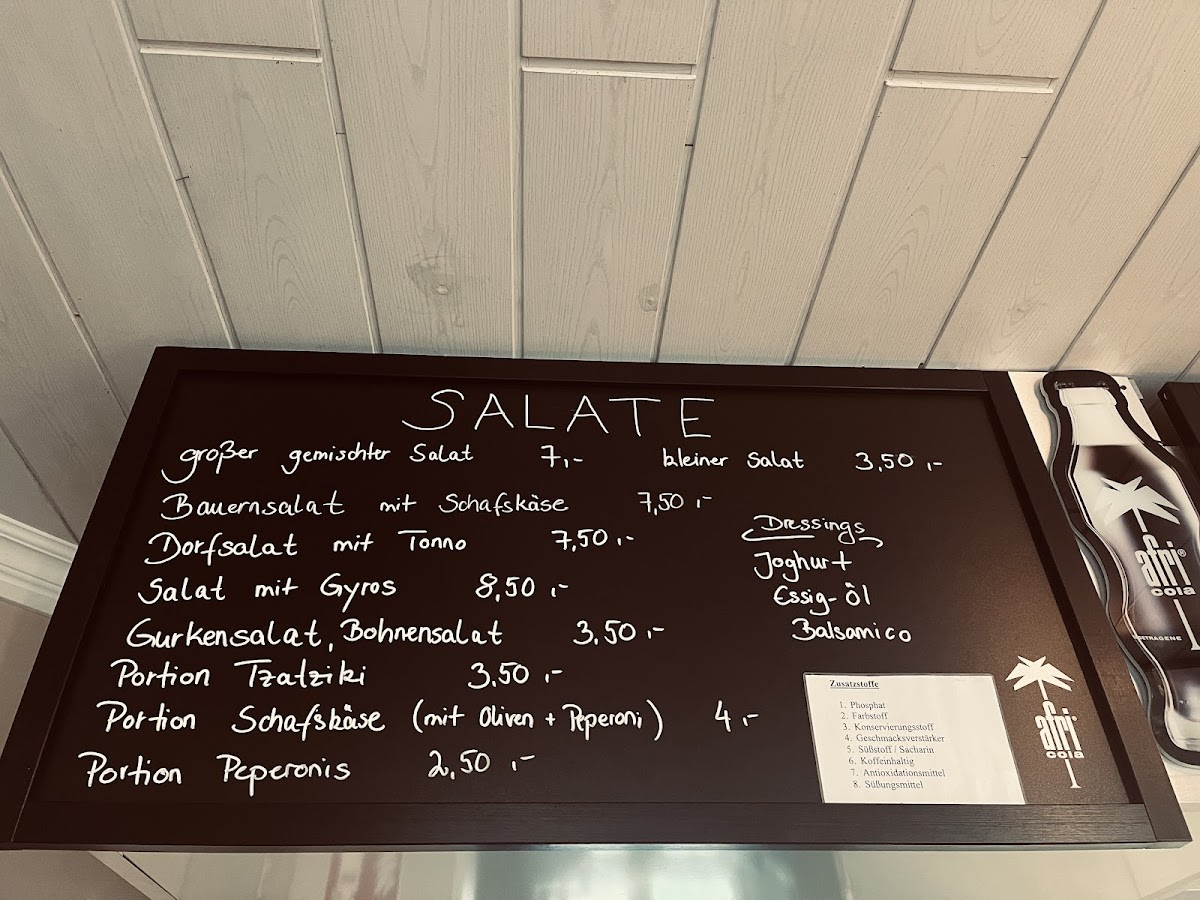 SALATE
großer gemischter Salat 7,- kleiner Salat 3,50,-
Bauernsalat mit Schafskäse 7,50,-
Dorfsalat mit Tonno 7,50,-
Salat mit Gyros 8,50,-
Gurkensalat, Bohnensalat 3,50,-
Portion Tzatziki 3,50,-
Portion Schafskäse (mit Oliven + Peperoni) 4,-
Portion Peperonis 2,50,-
Dressings
Joghurt
Essig-Öl
Balsamico
Zusatzstoffe
1. Phosphat
2. Farbstoff
3. Konservierungsstoff
4. Geschmacksverstärker
5. Süßstoff / Sacharin
6. Koffeinhaltig
7. Antioxidationsmittel
8. Süßungsmittel
afri
cola
afri®
cola